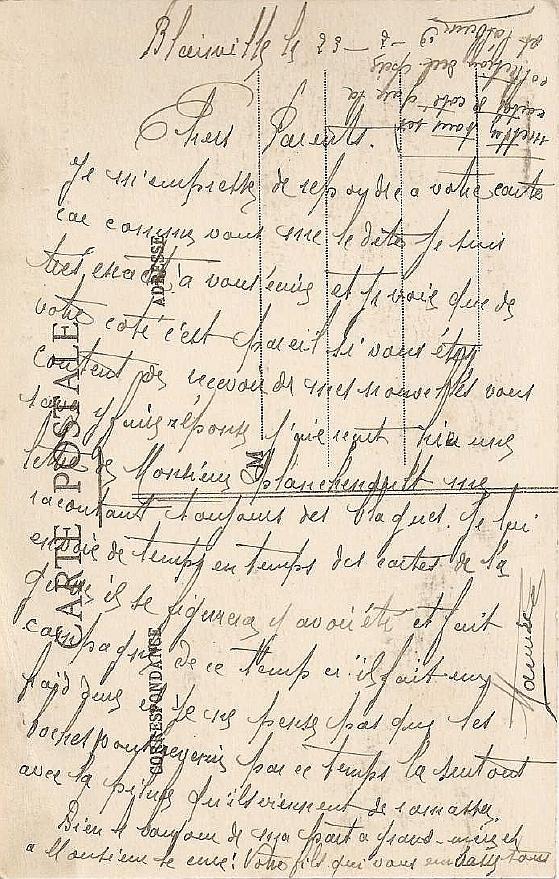 Blainville le
Chers Parents.
Je m'empresse de repondre a votre carte
car comme vous me le dites Je suis
tres exact a vous ecrire et je vois que de
votre coté c'est pareil si vous étes
content de recevoir de mes nouvelles vous
y faire réponse J'ai recut hier une
lettre de Monsieur Blanchendult me
racontant toujours des blagues. Je lui
envoie de temps en temps des cartes de la
guerre il se figurera y avoir été et fait
campagne de ce temp ci il fait un
froid Je ne pense pas que les
boches par ce temps la surtout
avec la pilule qu'ils viennent de ramasser
Bien le bonjour de ma part a grand-mère et
a Monsieur le curé! Votre fils qui vous embrasse tous
Maurice
mettez tous ces
cartes de coté pour la
collection
CARTE POSTALE
CORRESPONDANCE
ADRESSE
M